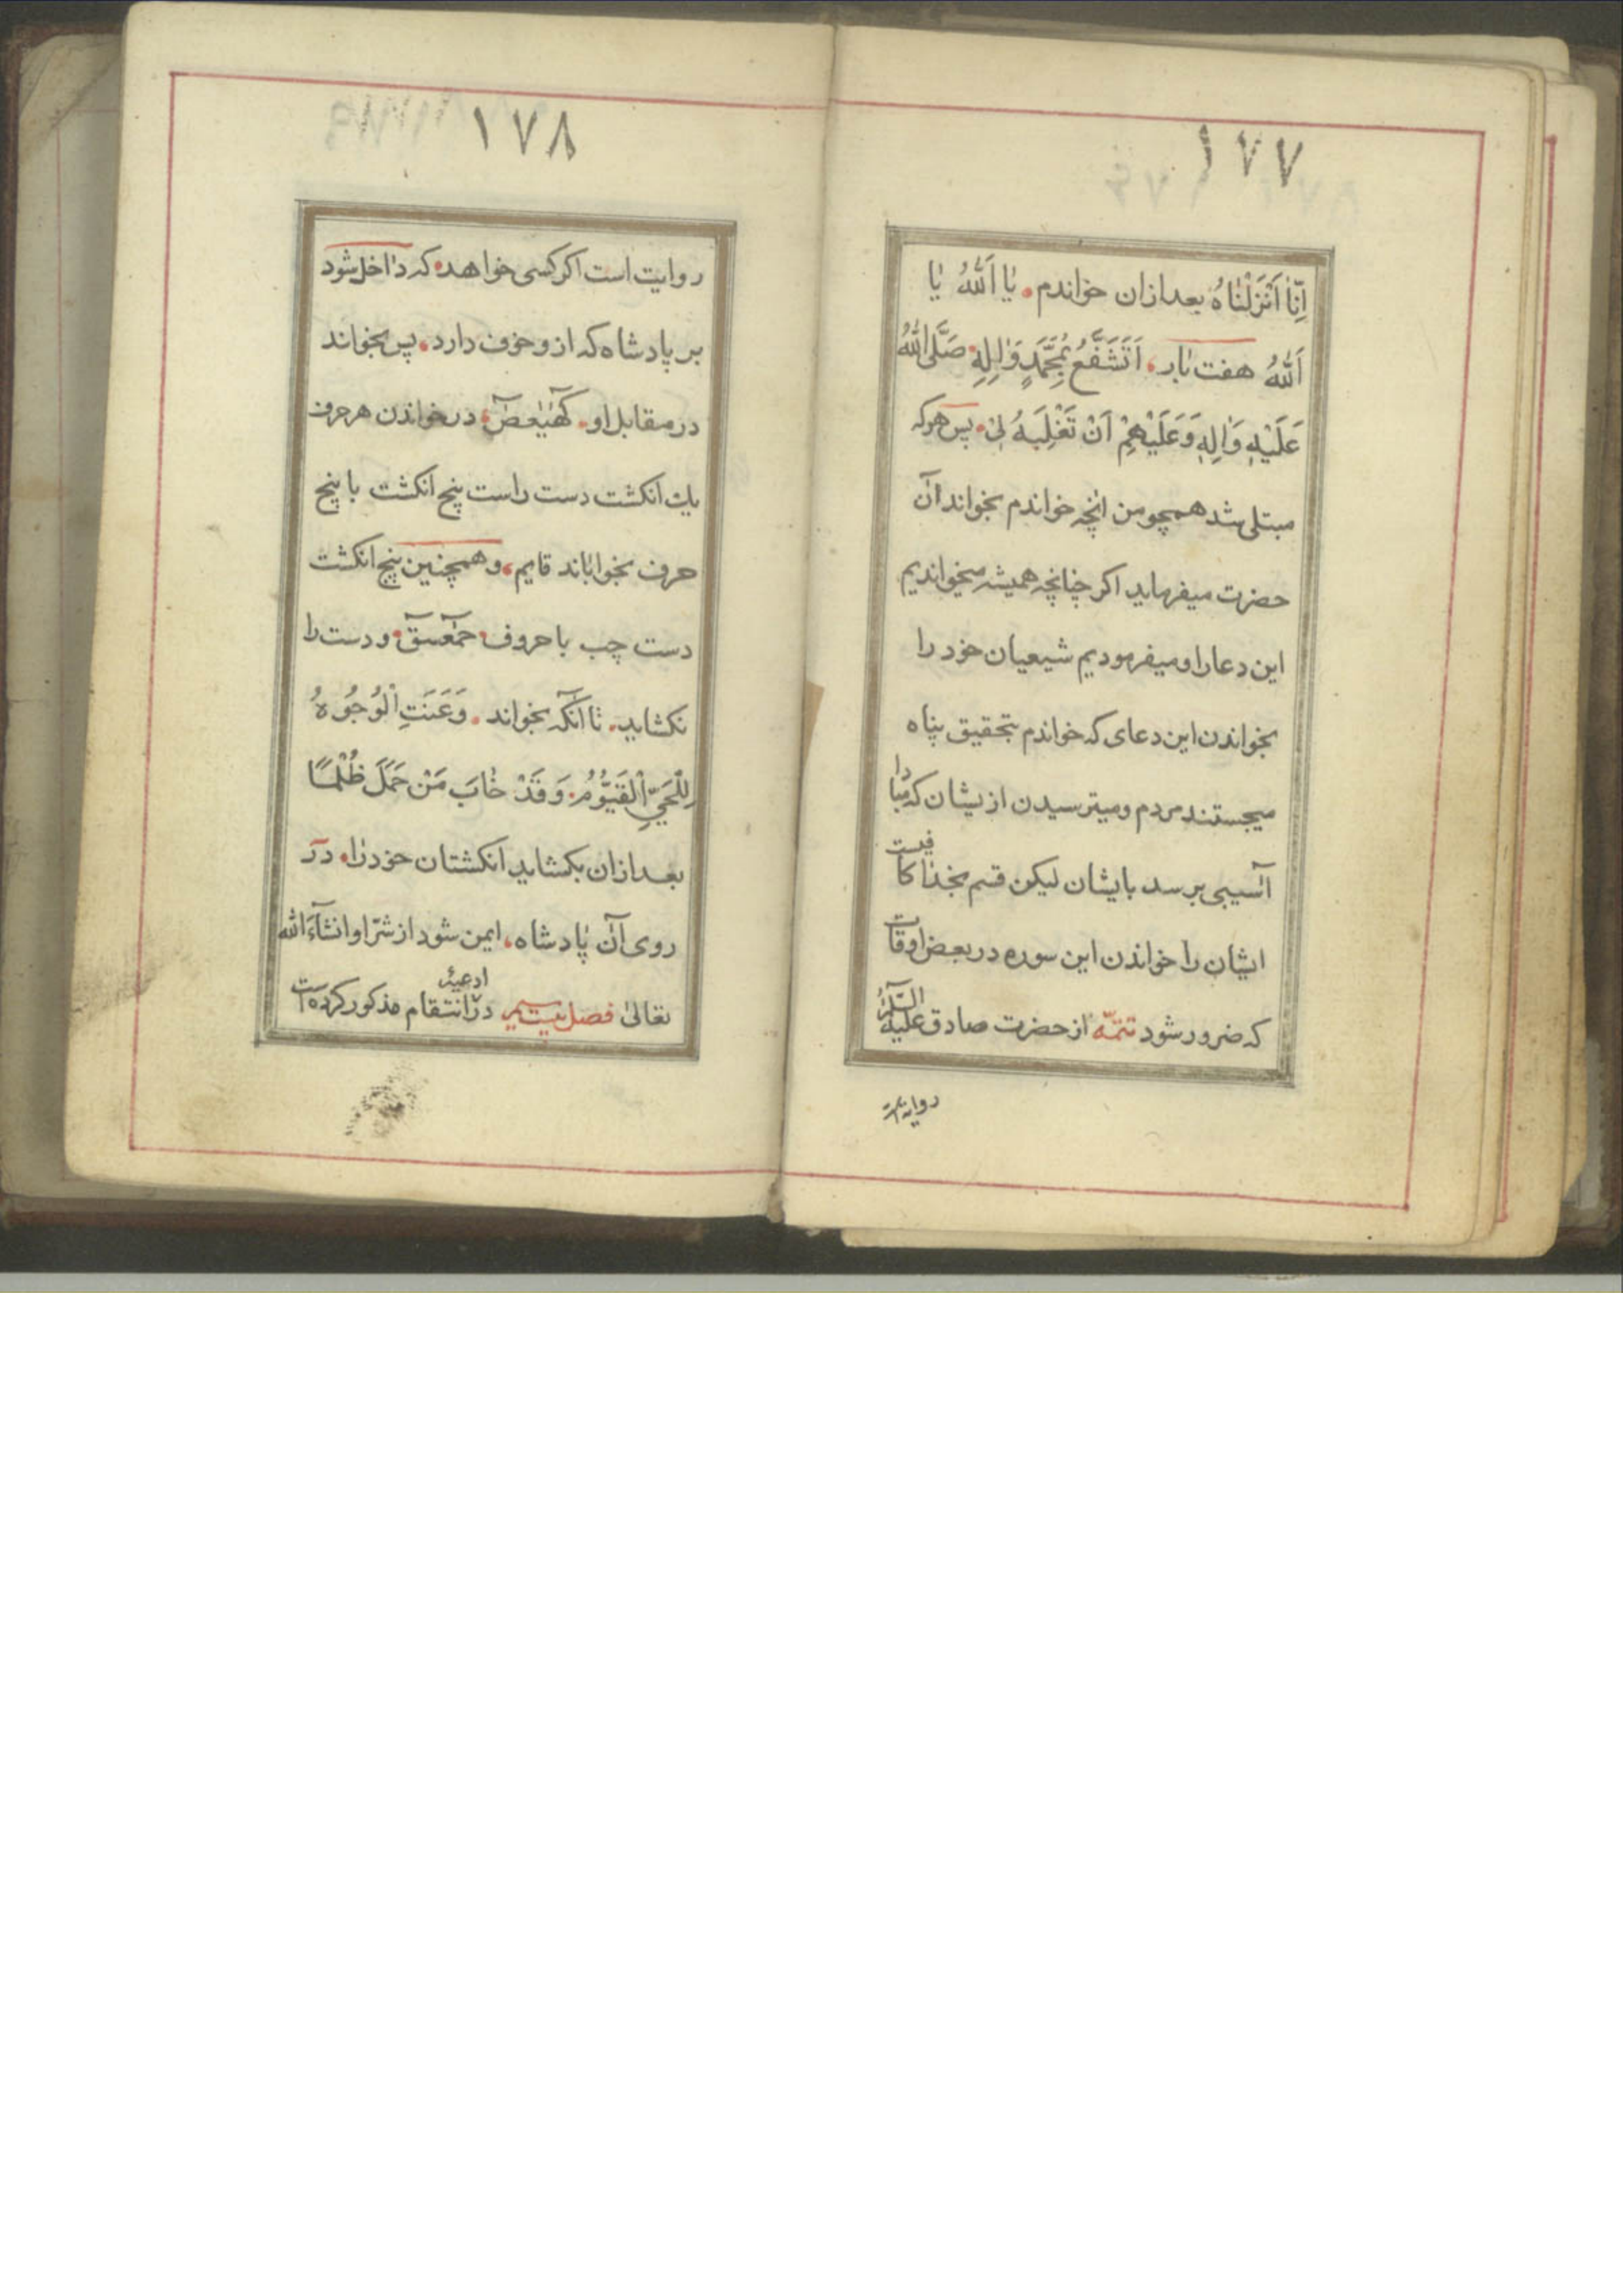 ١٧٧
اِنّٰا اَنْزَلْنٰاهُ بعد ازان خواندم يٰا اَللّٰهُ يٰا
اَللّٰهُ هفت بار اَتَشَفَّعُ بِمُحَمَّدٍ وَاٰلِهِ صَلَّى اللّٰهُ
عَلَيْهِ وَاٰلِهِ وَعَلَيْهِمْ اَنْ تَغْلِبَهُ لِىْ پس هركه
مبتلى شد همچو من آنچه خواندم بخواند آن
حضرت ميفرمايد اكر چنانچه هميشه ميخوانديم
اين دعا را و ميفرموديم شيعيان خود را
بخواندن اين دعاى كه خواندم بتحقيق پناه
ميجستند مردم و ميترسيدن ازيشان كه مبادا
آسيبى برسد بايشان ليكن قسم بخدا كافيست
ايشان را خواندن اين سوره در بعض اوقات
كه ضرور شود تتمّه از حضرت صادق عليه السّلام
روايت
١٧٨
روايت است اكر كسى خواهد كه داخل شود
بر پادشاه كه ازو خوف دارد پس بخواند
در مقابل او كٓهٰيٰعٓصٓ در خواندن هر حرف
يك انكشت دست راست پنج انكشت با پنج
حرف بخواباند قايم و همچنين پنج انكشت
دست چپ با حروف حٰمٓعٓسٓقٓ و دست را
نكشايد تا آنكه بخواند وَعَنَتِ الْوُجُوهُ
لِلْحَيِّ الْقَيُّومُ وَقَدْ خٰابَ مَنْ حَمَلَ ظُلْمًا
بعد ازان بكشايد انكشتان خود را در
روى آن پادشاه ايمن شود از شرّ او انشآءَ اللّٰه
تعالىٰ فصل بيستم در ادعيهٔ انتقام مذكور كرده است